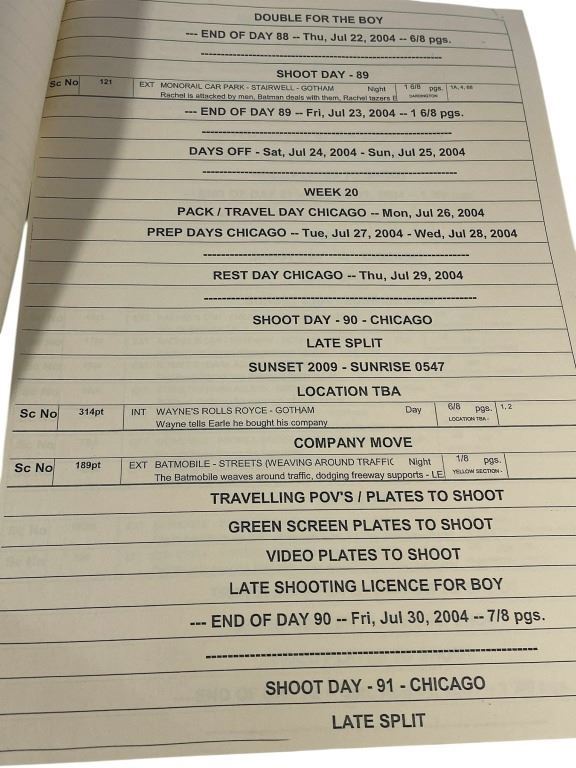 DOUBLE FOR THE BOY
--- END OF DAY 88 -- Thu, Jul 22, 2004 -- 6/8 pgs.
--------------------------------------------------
SHOOT DAY - 89
Sc No 121 EXT MONORAIL CAR PARK - STAIRWELL - GOTHAM Night 1 6/8 pgs. 1A, 4, 68
Rachel is attacked by men, Batman deals with them, Rachel tazers B CARDINGTON
--- END OF DAY 89 -- Fri, Jul 23, 2004 -- 1 6/8 pgs.
--------------------------------------------------
DAYS OFF - Sat, Jul 24, 2004 - Sun, Jul 25, 2004
--------------------------------------------------
WEEK 20
PACK / TRAVEL DAY CHICAGO -- Mon, Jul 26, 2004
PREP DAYS CHICAGO -- Tue, Jul 27, 2004 - Wed, Jul 28, 2004
--------------------------------------------------
REST DAY CHICAGO -- Thu, Jul 29, 2004
--------------------------------------------------
SHOOT DAY - 90 - CHICAGO
LATE SPLIT
SUNSET 2009 - SUNRISE 0547
LOCATION TBA
Sc No 314pt INT WAYNE'S ROLLS ROYCE - GOTHAM Day 6/8 pgs. 1, 2
Wayne tells Earle he bought his company LOCATION TBA -
COMPANY MOVE
Sc No 189pt EXT BATMOBILE - STREETS (WEAVING AROUND TRAFFIC Night 1/8 pgs.
The Batmobile weaves around traffic, dodging freeway supports - LE YELLOW SECTION -
TRAVELLING POV'S / PLATES TO SHOOT
GREEN SCREEN PLATES TO SHOOT
VIDEO PLATES TO SHOOT
LATE SHOOTING LICENCE FOR BOY
--- END OF DAY 90 -- Fri, Jul 30, 2004 -- 7/8 pgs.
--------------------------------------------------
SHOOT DAY - 91 - CHICAGO
LATE SPLIT